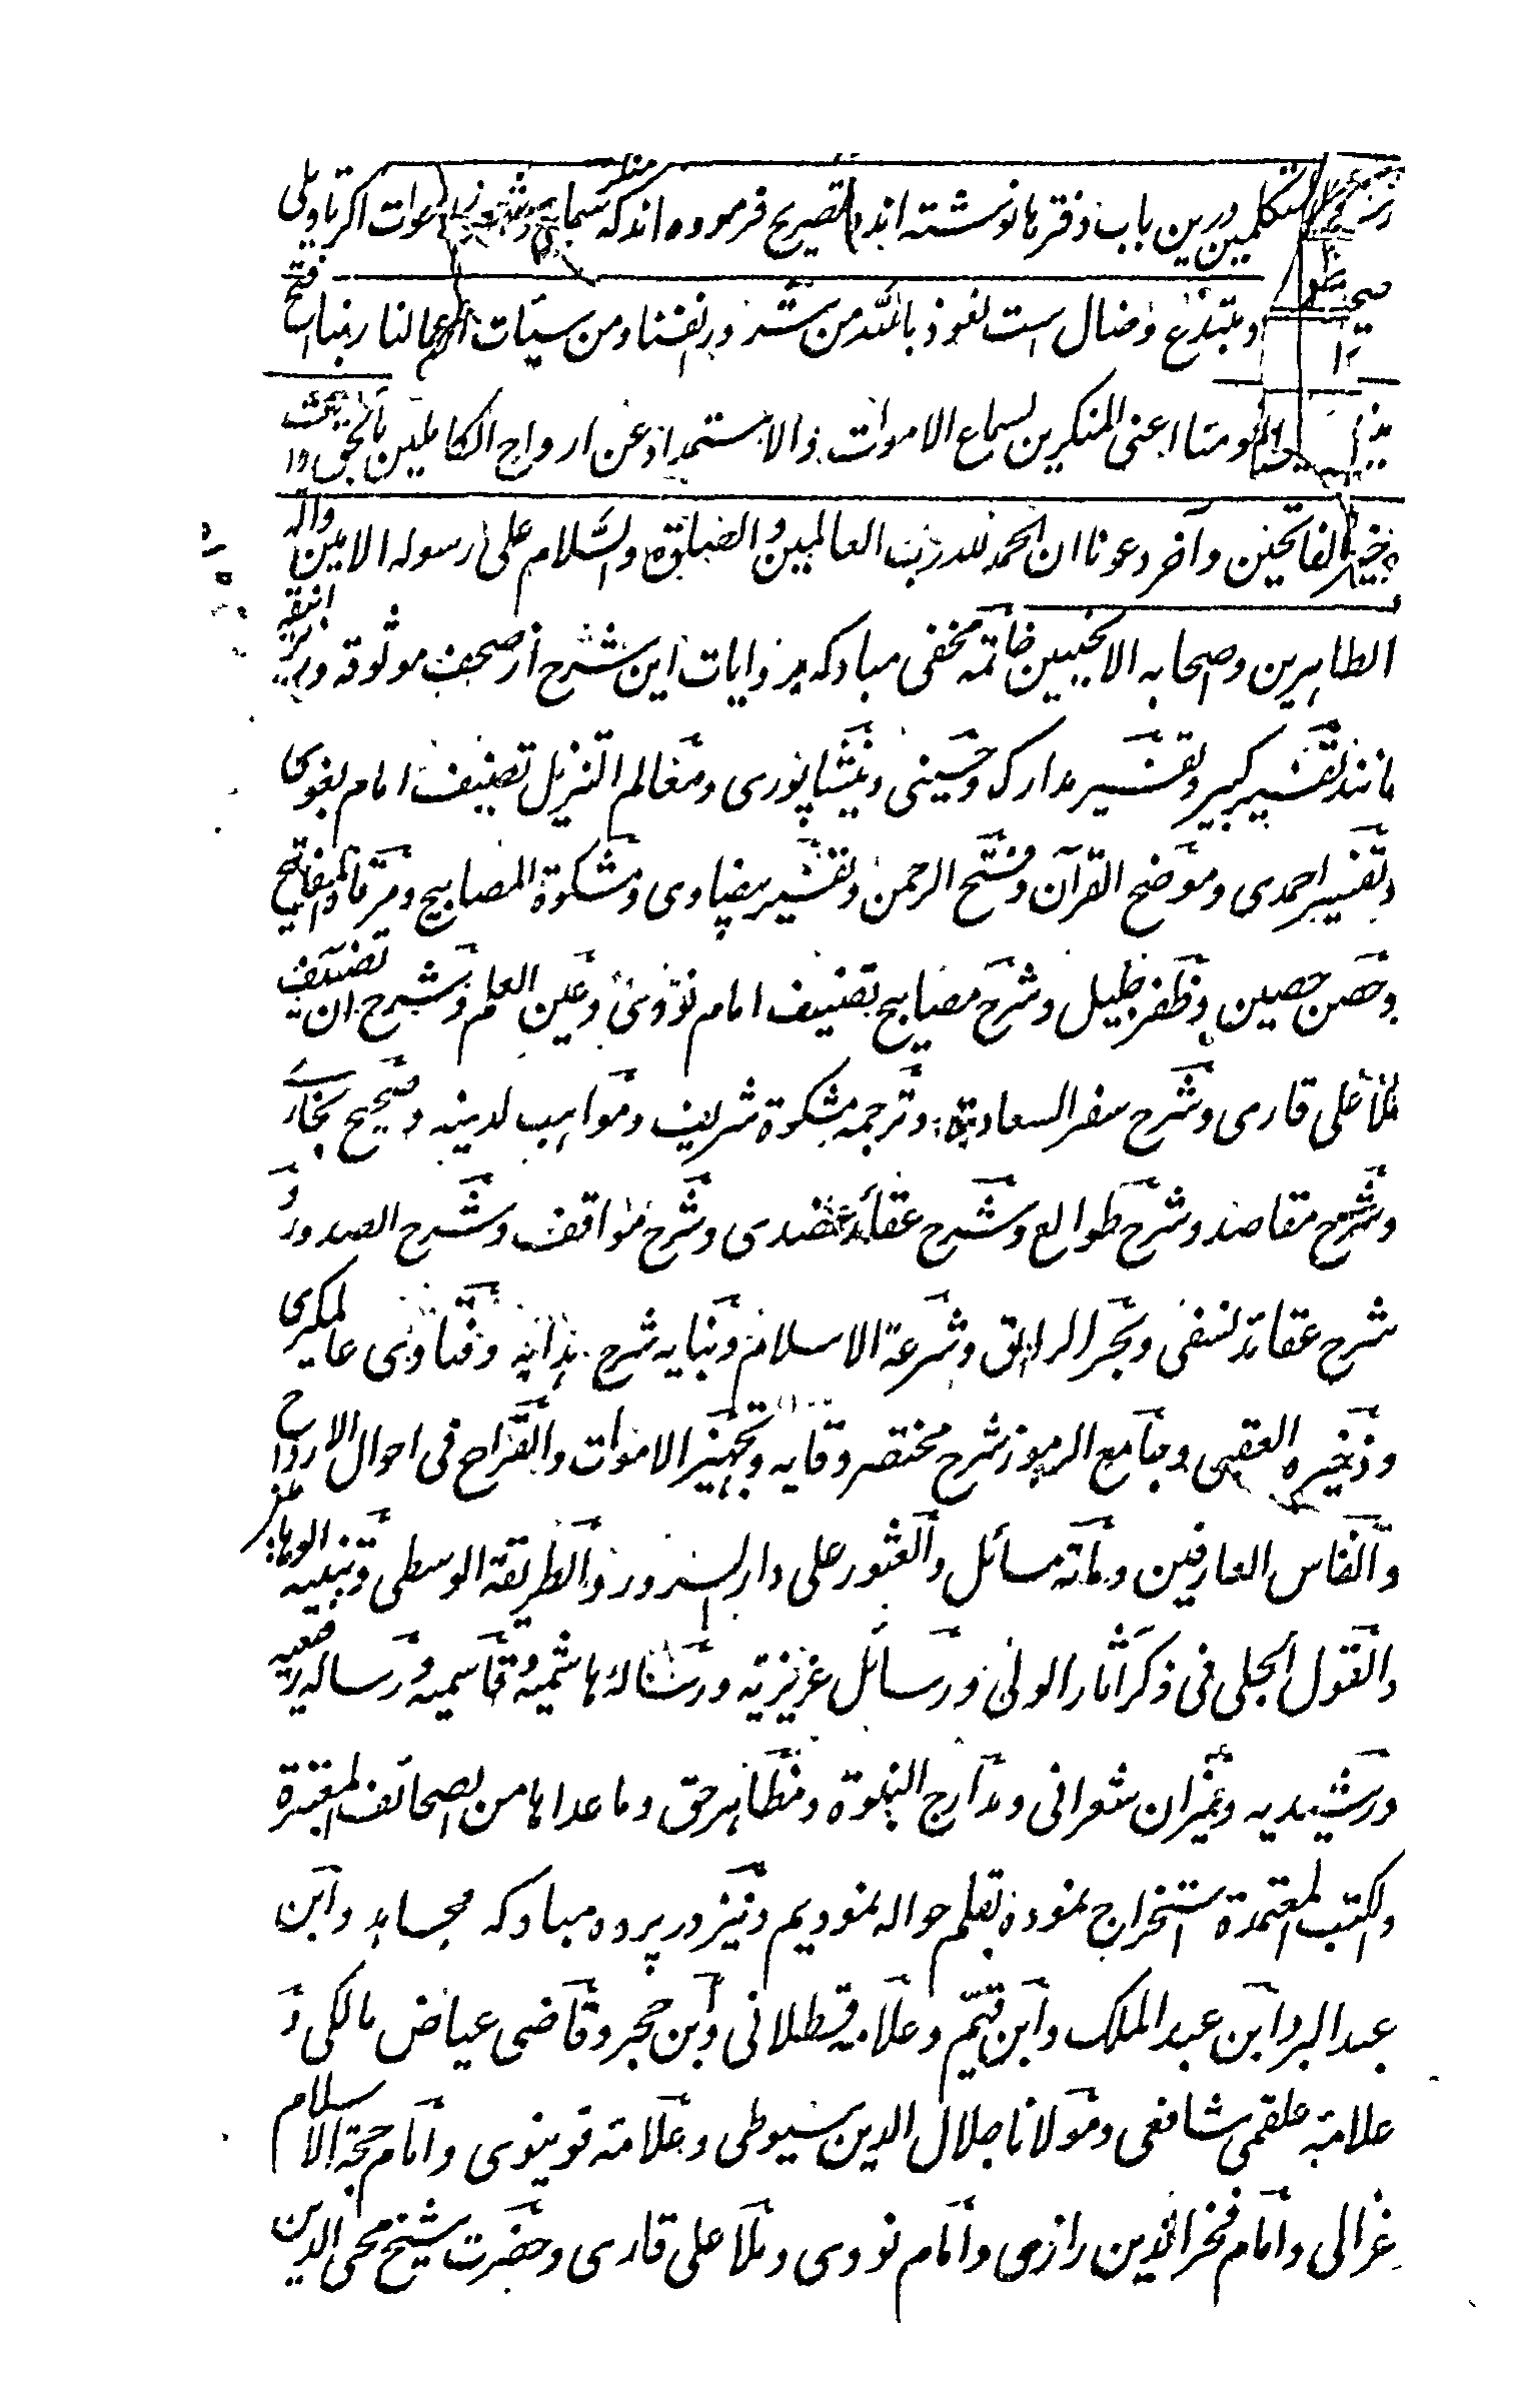 متکلمین درین باب دفترها نوشته اند و تصریح فرموده اند که منکر سماع و شعور اموات اگر تاویلی
صحیح و مبتدع و ضال است نعوذ بالله من شرور انفسنا و من سیئات اعمالنا ربنا افتح
بیننا و بین قومنا اعنی المنکرین لسماع الاموات والاستمداد عن ارواح الکاملین بالحق وانت
خیر الفاتحین و آخر دعونا ان الحمد لله رب العالمین والصلوة والسلام علی رسوله الامین واله
الطاهرین وصحابه الانجبین خاتمه مخفی مبادکه روایات این شرح از صحف موثوقه و زبر انیقه
مانند تفسیر کبیر و تفسیر مدارک و حسینی و نیشاپوری و معالم التنزیل تصنیف امام بغوی
و تفسیر احمدی و موضح القرآن و فتح الرحمن و تفسیر بیضاوی و مشکوة المصابیح و مرقاة المفاتیح
و حصن حصین و ظفر جلیل و شرح مصابیح تصنیف امام نووی و عین العلم و شرح ان تصنیف
ملا علی قاری و شرح سفر السعادة و ترجمه مشکوة شریف و مواهب لدنیه و صحیح بخاری
و شرح مقاصد و شرح طوالع و شرح عقائد عضدی و شرح مواقف و شرح الصدور و
شرح عقائد نسفی و بحر الرایق و شرعة الاسلام و بنایه شرح هدایه و فتاوی عالمگیری
و ذخیره العقبی و جامع الرموز شرح مختصر وقایه و تجهیز الاموات والقراح فی احوال الارواح
و انفاس العارفین و مائه مسائل والعثور علی دار السرور والطریقة الوسطی و تنبیه الوهابیین
والقول الجلی فی ذکر آثار الولی و رسائل عزیزیه و رساله هاشمیه و قاسمیه و رساله رفیعیه
و رشیدیه و میزان شعرانی و مدارج النبوة و مظاهر حق و ماعداها من الصحائف المعتبرة
والکتب المعتمدة استخراج نموده بقلم حواله نمودیم و نیز در پرده مبادکه مجاهد و ابن
عبد البر و ابن عبد الملک و ابن قیم و علامه قسطلانی و ابن حجر و قاضی عیاض مالکی و
علامه علقمی شافعی و مولانا جلال الدین سیوطی و علامه قونیوی و امام حجة الاسلام
غزالی و امام فخر الدین رازی و امام نووی و ملا علی قاری و حضرت شیخ محی الدین